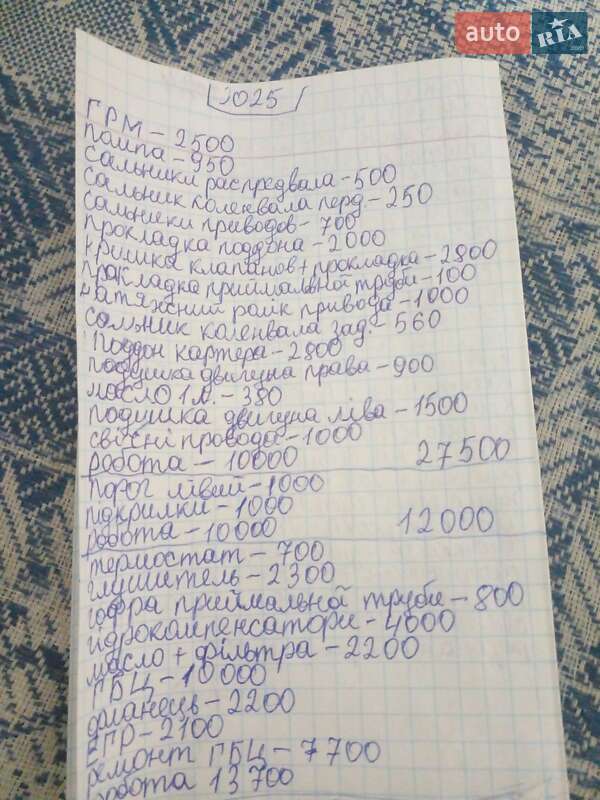 auto RIA
2025
ГРМ - 2500
помпа - 950
сальники распредвала - 500
сальник коленвала перд. - 250
сальники приводов - 700
прокладка поддона - 2000
кришка клапанов + прокладка - 2800
прокладка приймальной труби - 100
натяжний ролік привода - 1000
сальник каленвала зад. - 560
поддон картера - 2800
подушка двигуна права - 900
масло 1л. - 380
подушка двигуна ліва - 1500
свічні проводов - 1000
робота - 10000 27500
порог лівий - 1000
підкрилки - 1000
робота - 10000 12000
термостат - 700
глушитель - 2300
гофра приймальной труби - 800
гідрокомпенсатори - 4000
масло + фільтра - 2200
ГБЦ - 10000
фланець - 2200
ЕГР - 2100
ремонт ГБЦ - 7700
робота 13700